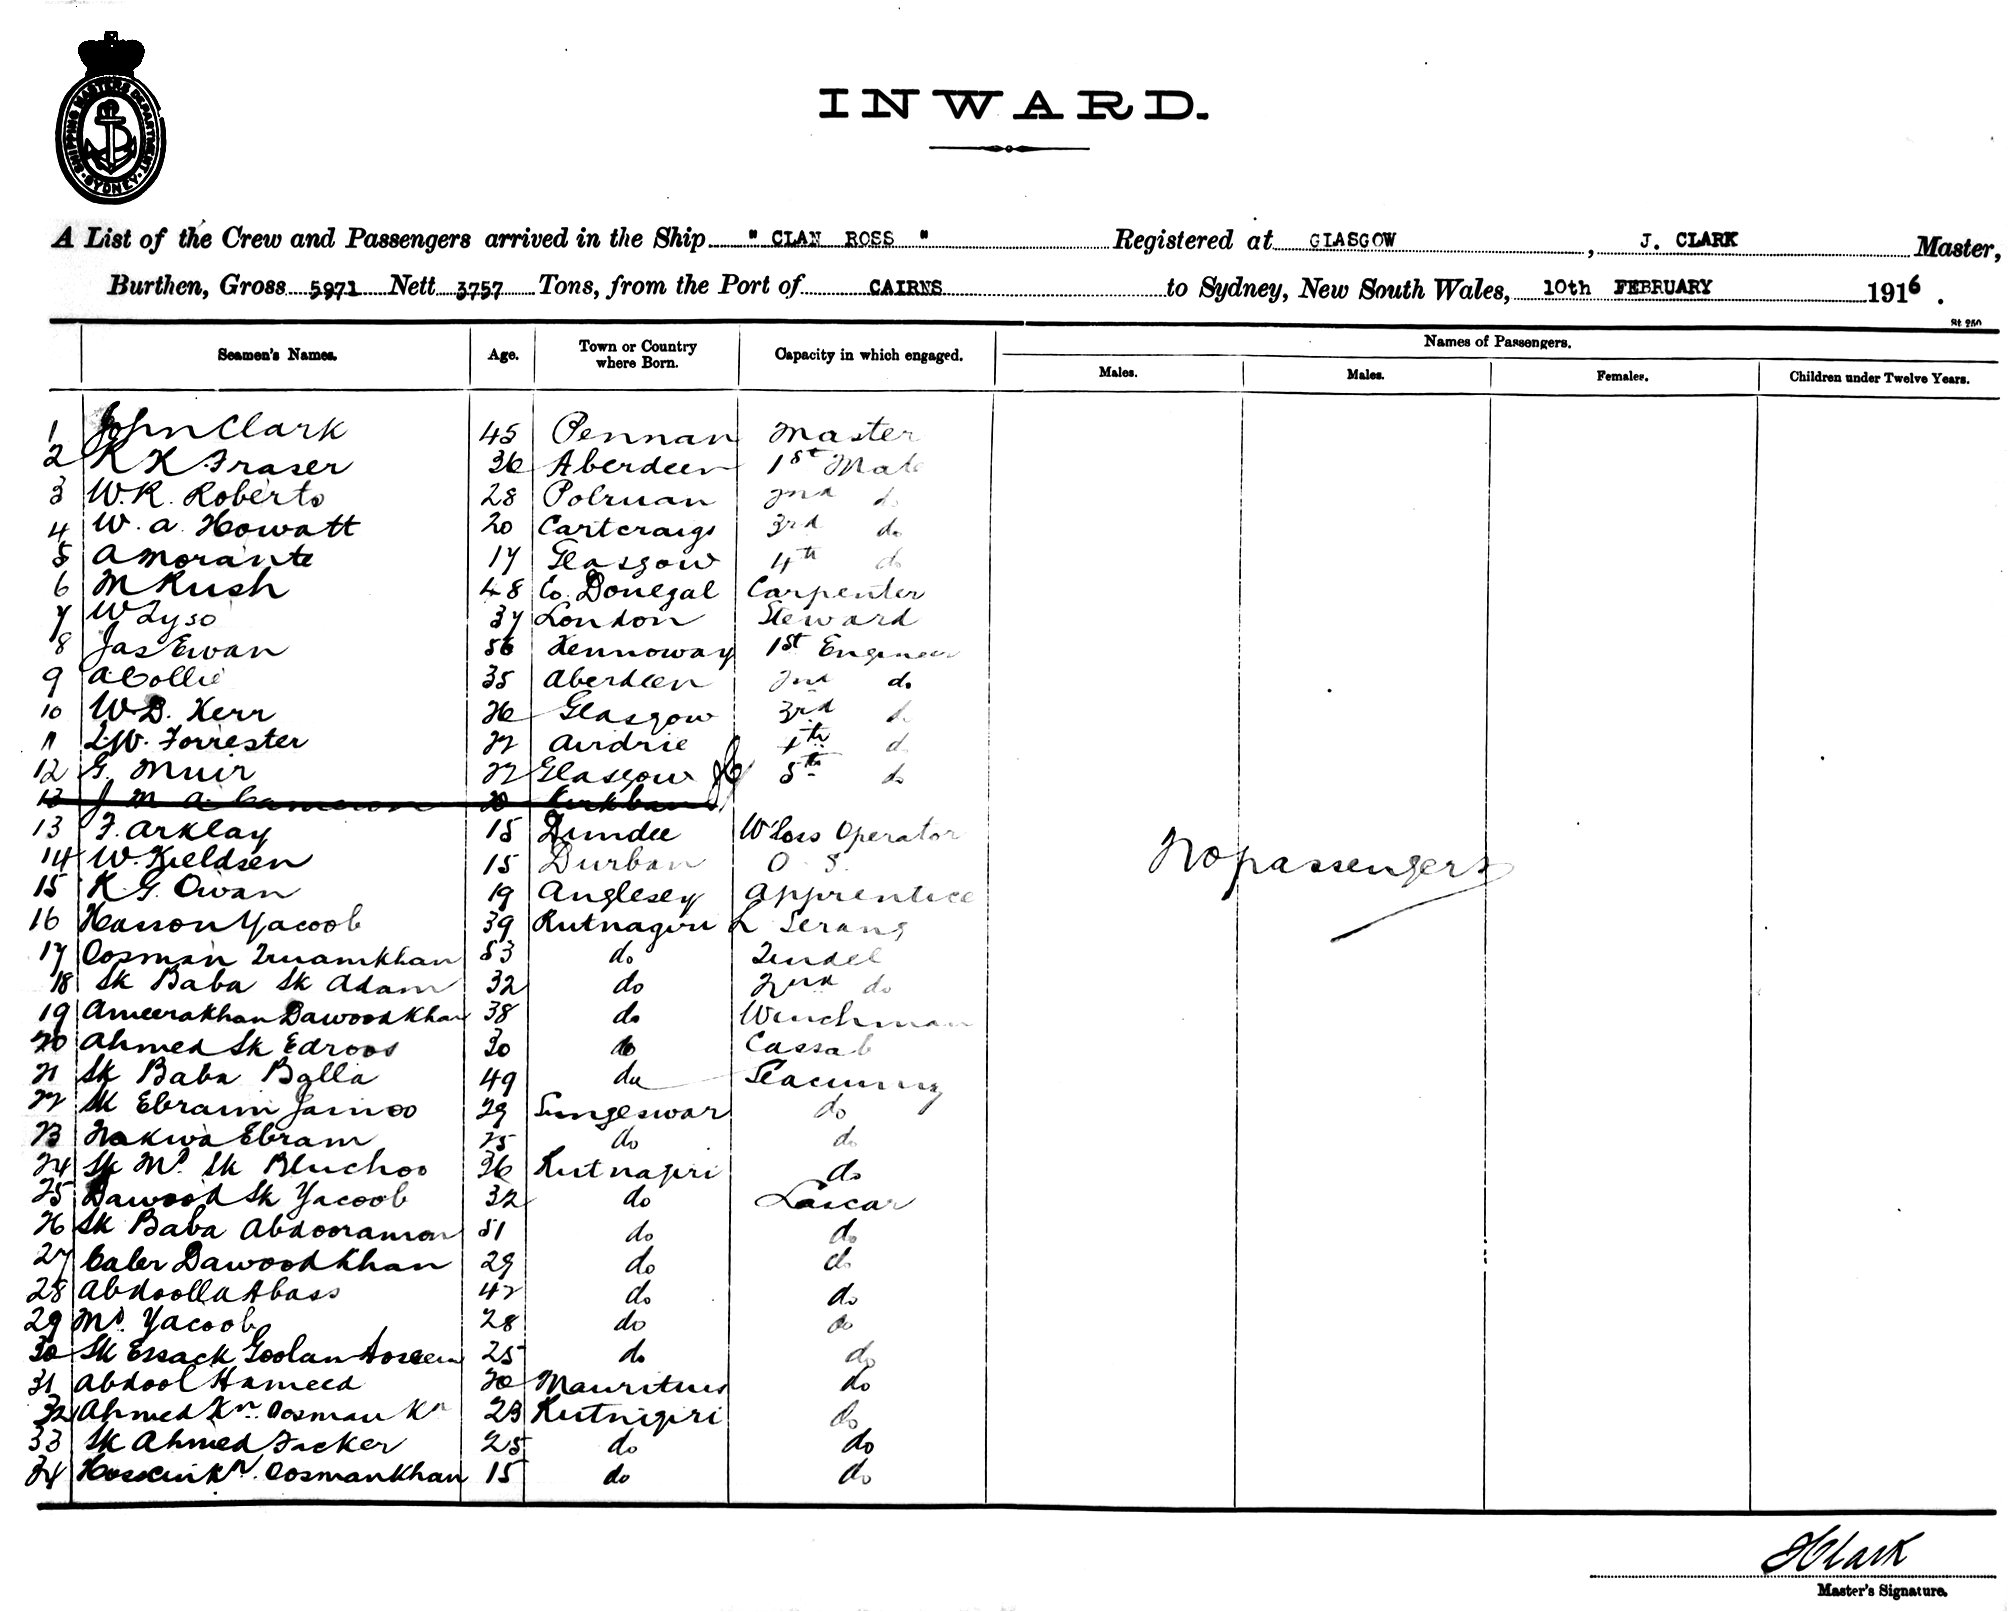 SHIPPING MASTERS DEPARTMENT SYDNEY
INWARD.
A List of the Crew and Passengers arrived in the Ship " CLAN ROSS " Registered at GLASGOW, J. CLARK Master,
Burthen, Gross 5971 Nett 3757 Tons, from the Port of CAIRNS to Sydney, New South Wales, 10th FEBRUARY 1916.
St 250
Seamen's Names. Age. Town or Country where Born. Capacity in which engaged. Names of Passengers.
Males. Males. Females. Children under Twelve Years.
1 John Clark 45 Pennan Master
2 R K Fraser 36 Aberdeen 1st Mate
3 W. R. Roberts 28 Polruan 2nd do
4 W. A. Howatt 20 Cartcraigs 3rd do
5 A Morante 17 Glasgow 4th do
6 M Rush 48 Co. Donegal Carpenter
7 W Lyso 37 London Steward
8 Jas Ewan 56 Kennoway 1st Engineer
9 A Collie 35 Aberdeen 2nd do
10 W. D. Kerr 26 Glasgow 3rd do
11 L. W. Forrester 22 Airdrie 4th do
12 G. Muir 22 Glasgow 5th do
13 J M A Cameron 20
13 F. Arklay 15 Dundee W'less Operator
14 W. Kieldsen 15 Durban O. S.
No passengers
15 R. G. Owan 19 Anglesey Apprentice
16 Hasson Yacoob 39 Rutnagiri L Serang
17 Oosman Imamkhan 53 do Tindel
18 Sk Baba Sk Adam 32 do 2nd do
19 Ameerakhan Dawoodkhan 38 do Winchman
20 Ahmed Sk Edroos 30 do Cassab
21 Sk Baba Balla 49 do Seacunny
22 Sk Ebraim Jainoo 29 Sungeswar do
23 Nakwa Ebram 25 do do
24 Sk Md. Sk Bluchoo 36 Rutnagiri do
25 Dawood Sk Yacoob 32 do Lascar
26 Sk Baba Abdooramon 51 do do
27 Caler Dawoodkhan 29 do do
28 Abdoolla Abass 42 do do
29 Md. Yacoob 28 do do
30 Sk Essack Goolam Hoseein 25 do do
31 Abdool Hameed 20 Mauritius do
32 Ahmed Kn. Oosman Kn 23 Rutnigiri do
33 Sk Ahmed Facker 25 do do
34 Hossein Kn. Oosmankhan 15 do do
J Clark
Master's Signature.